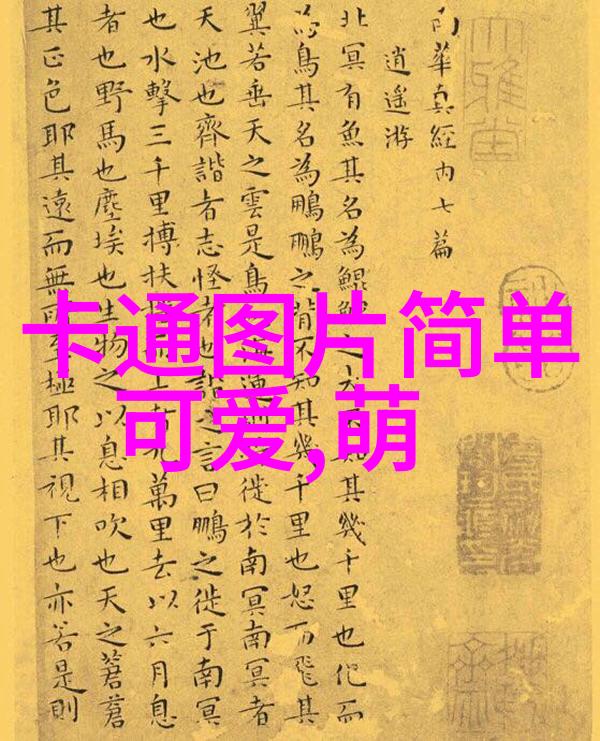 卡通图片简单
可爱,萌
南華真經内七篇
逍遥游
北冥有魚其名為鯤鯤之大不知其幾千里也化而
為鳥其名為鵬鵬之背不知其幾千里也怒而飛其
翼若垂天之雲是鳥也海運則將徙於南冥南冥者
天池也齊諧者志怪者也諧之言曰鵬之徙于南冥
也水擊三千里搏扶搖而上者九萬里去以六月息
者也野馬也塵埃也生物之以息相吹也天之蒼蒼
其正色耶其遠而無所至極耶其視下也亦若是則
大雅堂